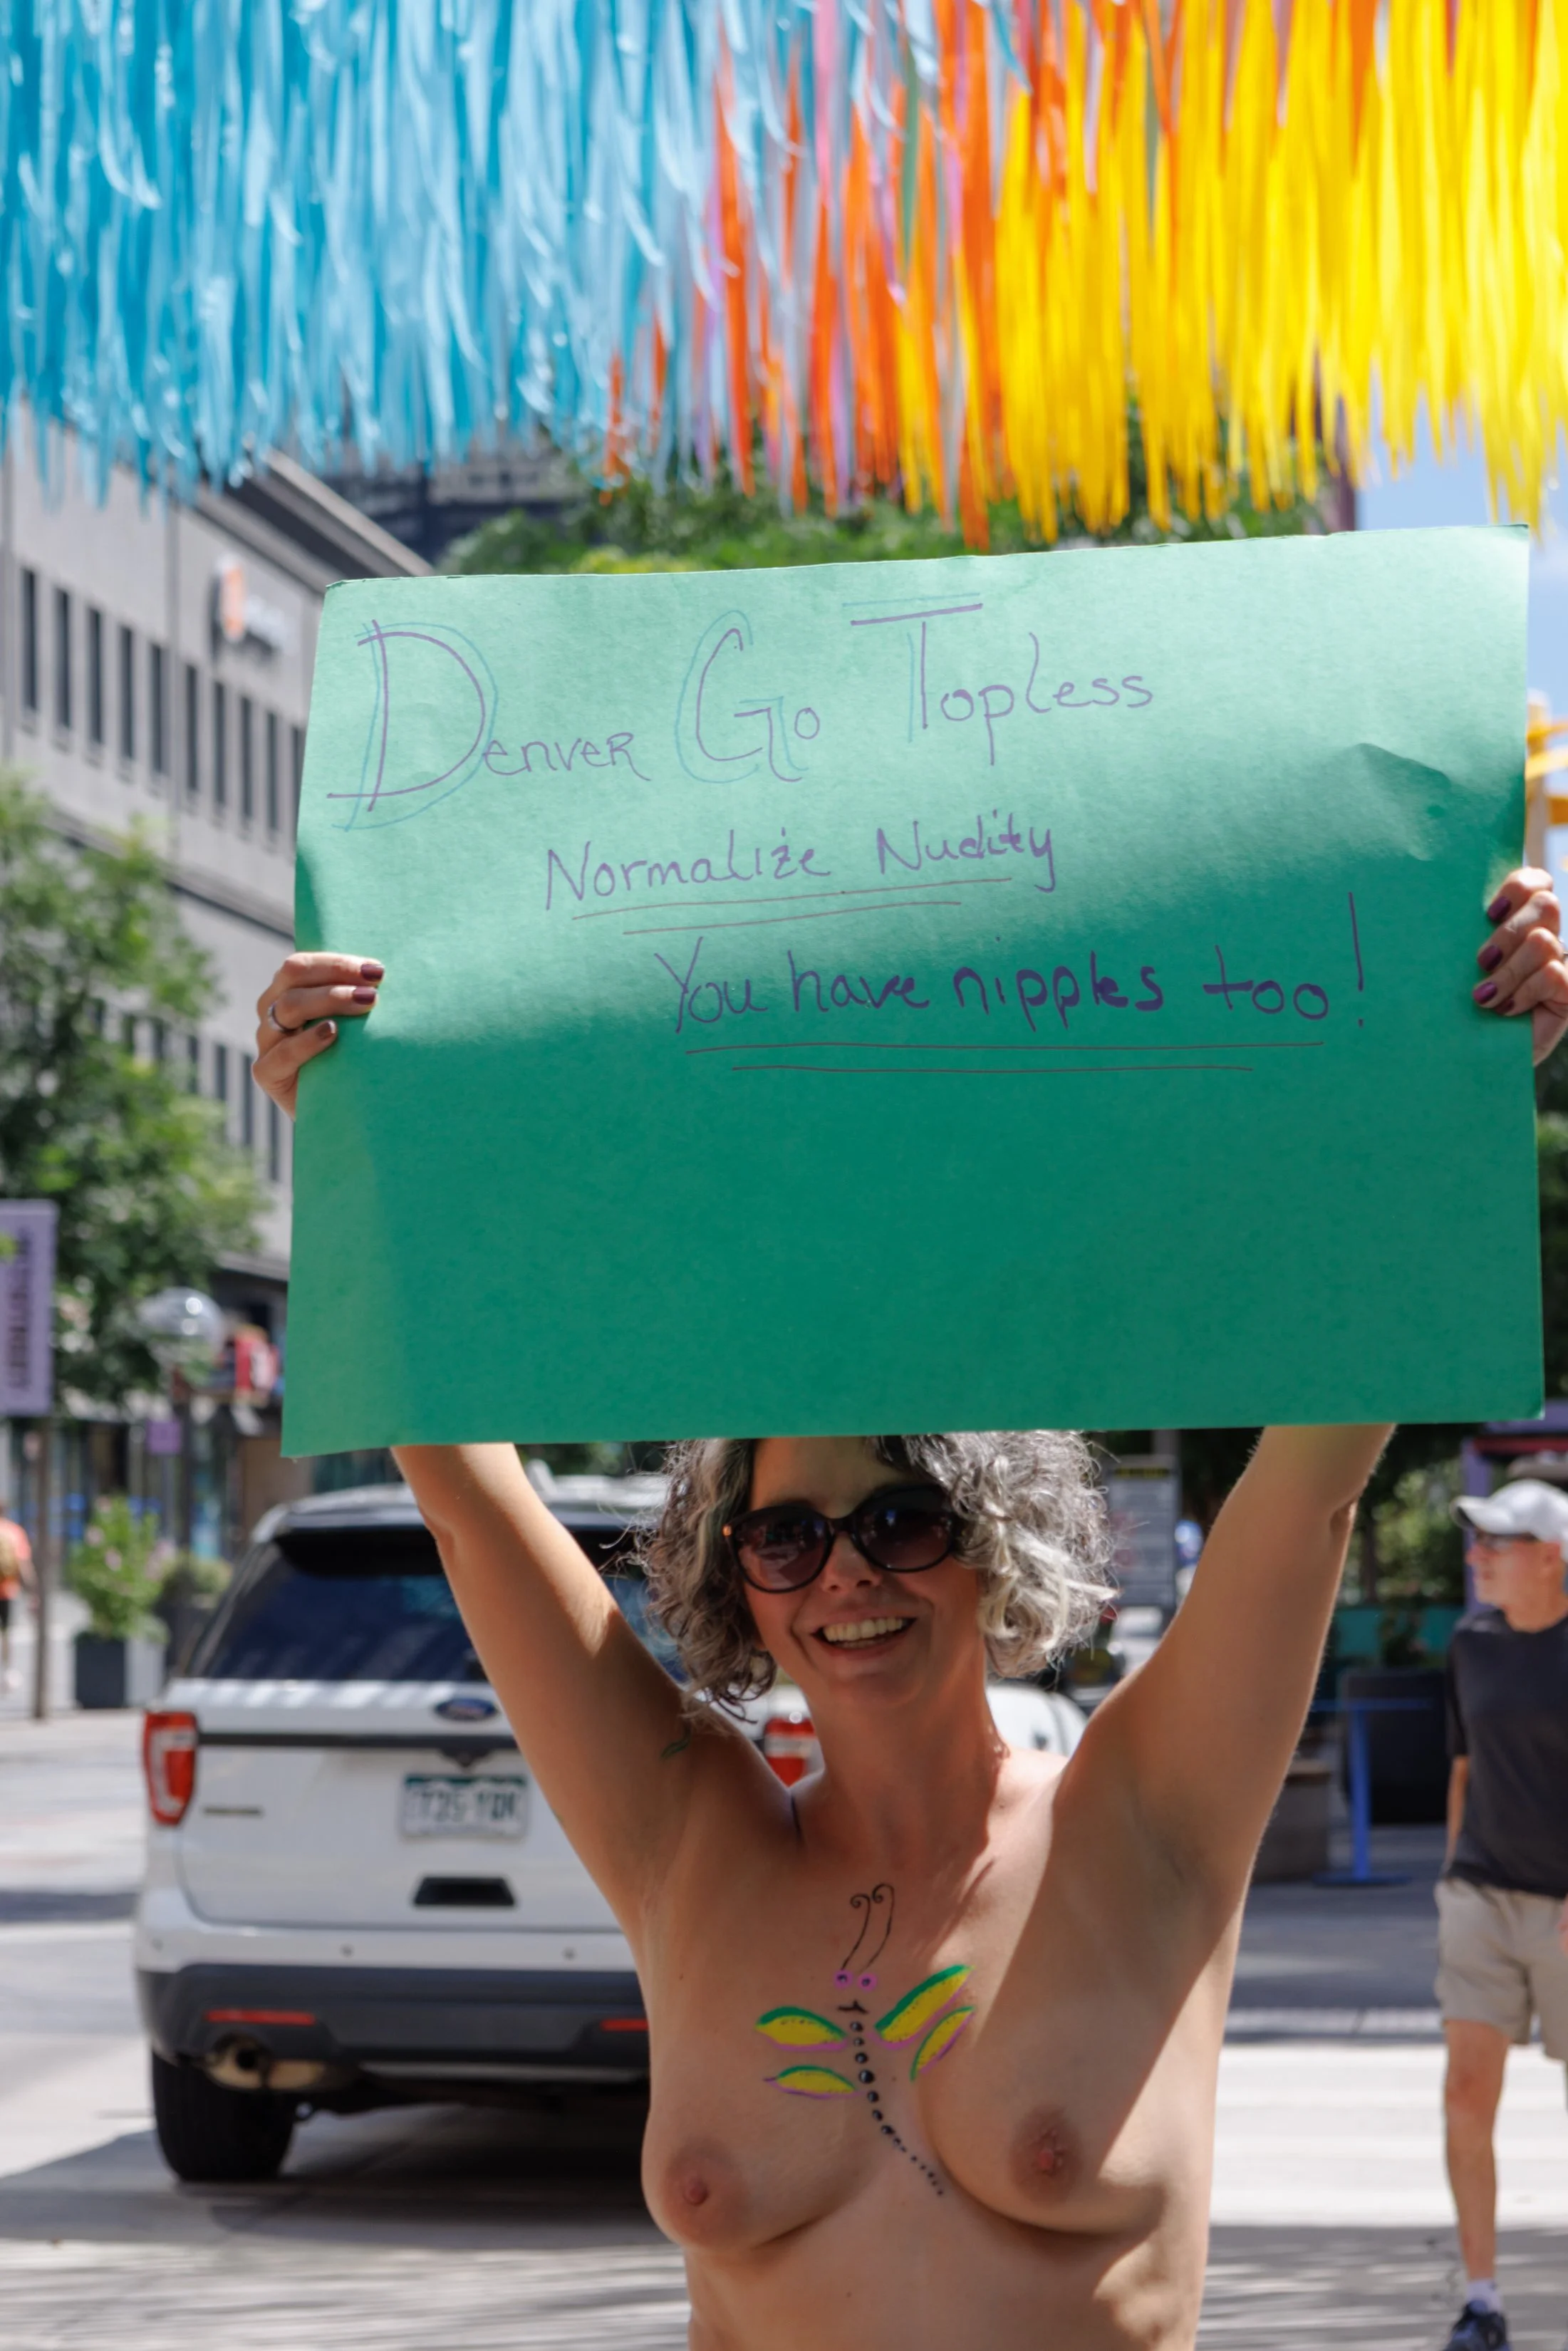 Denver Go Topless
Normalize Nudity
You have nipples too!